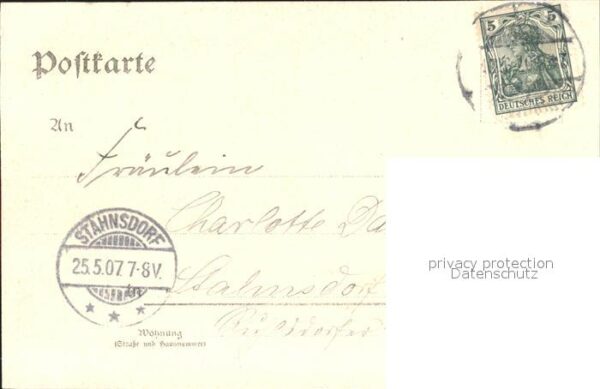 5 5
DEUTSCHES REICH
Postkarte
An
Fräulein
Charlotte Da
STAHNSDORF
25.5.07.7-8V.
in
Stahnsdorf
privacy protection
Datenschutz
Wohnung
(Straße und Hausnummer)